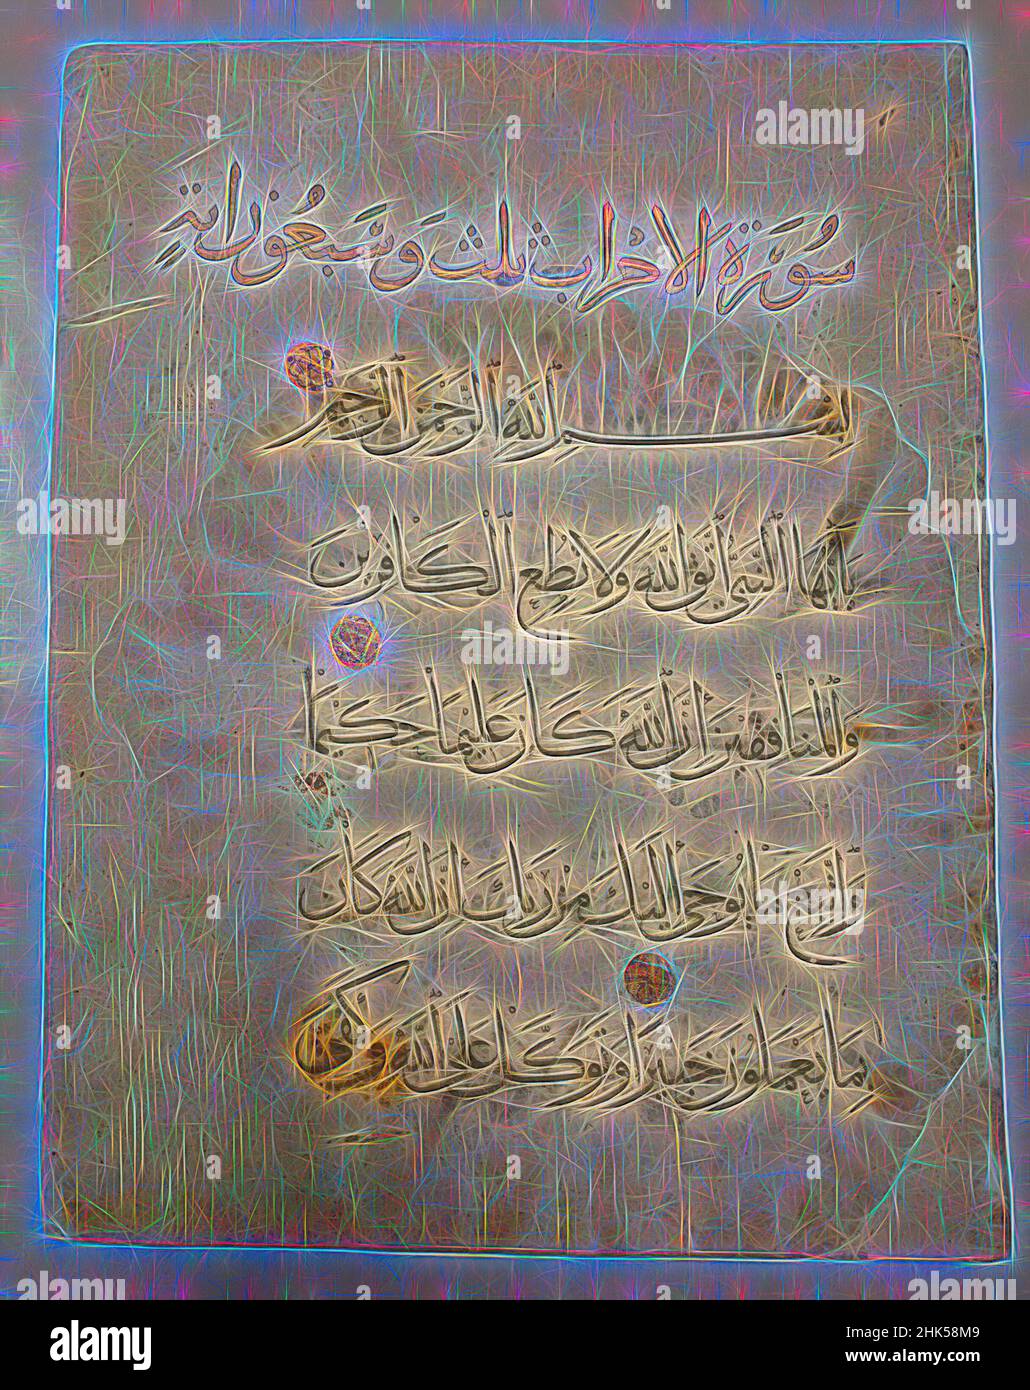 سُورَةُ الاحزاب ثلث وَسَبعُون اية
بسم الله الرحمن الرحيم
ياايها النبي اتق الله ولا تطع الكافرين
والمنافقين ان الله كان عليما حكيما
واتبع ما يوحى اليك من ربك ان الله كان
بما تعملون خبيرا وتوكل على الله وكفى
alamy
alamy
alamy
alamy
alamy
alamy
Image ID: 2HK58M9
www.alamy.com